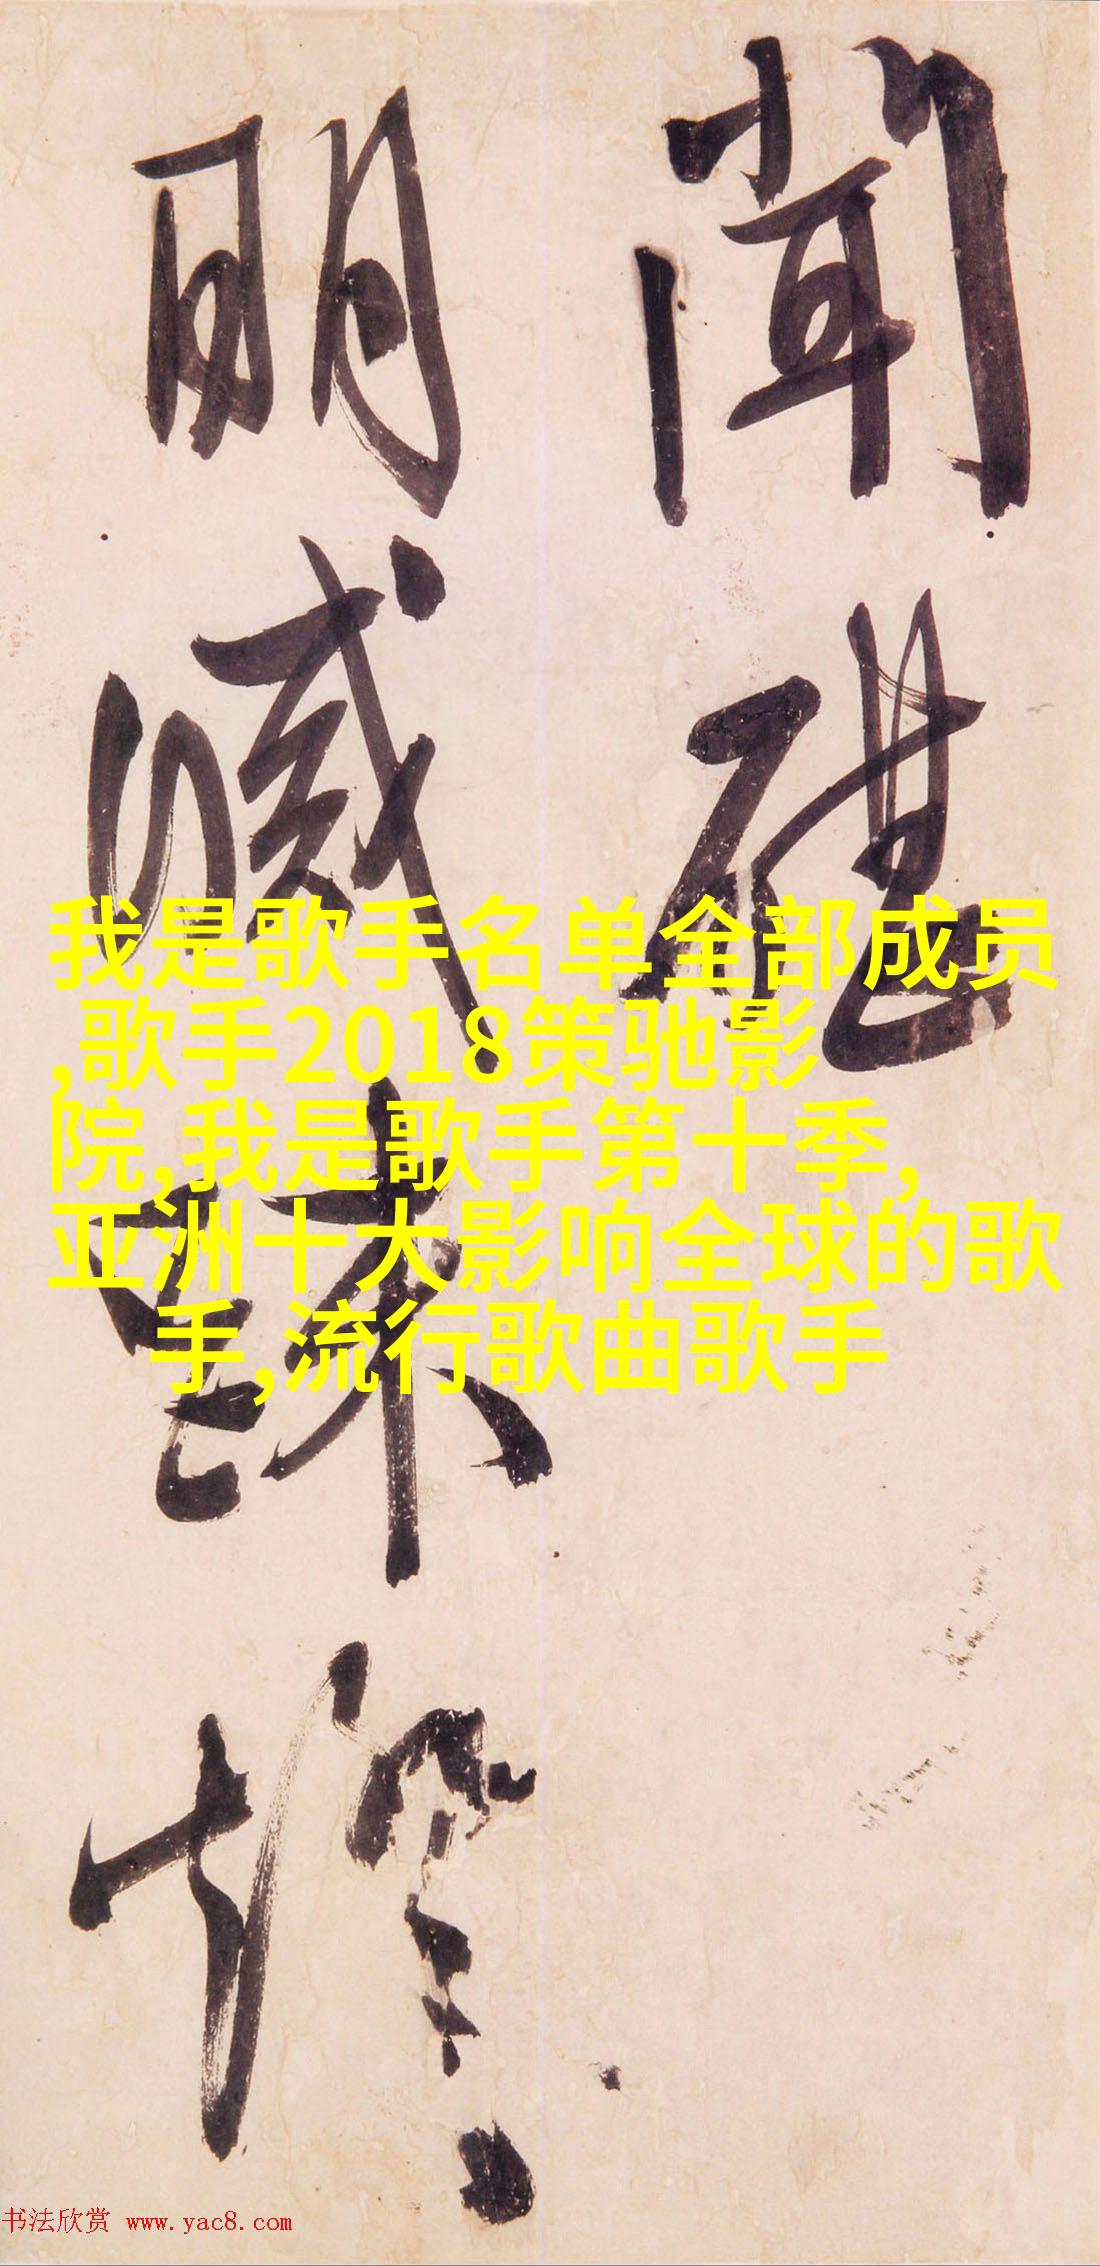 聞雖
明臧
跡
我是歌手名单全部成员
,歌手2018策驰影
院,我是歌手第十季,
亚洲十大影响全球的歌
手,流行歌曲歌手
书法欣赏 www.yac8.com